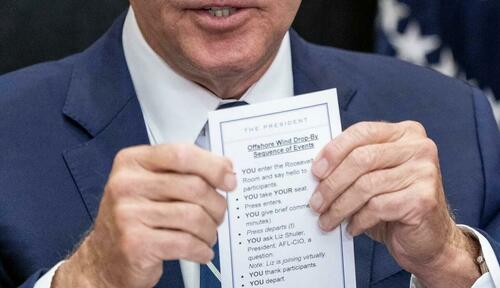 THE PRESIDENT
Offshore Wind Drop-By
Sequence of Events
YOU enter the Roosevelt
Room and say hello to
participants.
YOU take YOUR seat.
Press enters.
YOU give brief comme
minutes).
Press departs (t)
YOU ask Liz Shuler,
President, AFL-CIO, a
question
Note: Liz is joining virtually
YOU thank participants.
YOU depart.